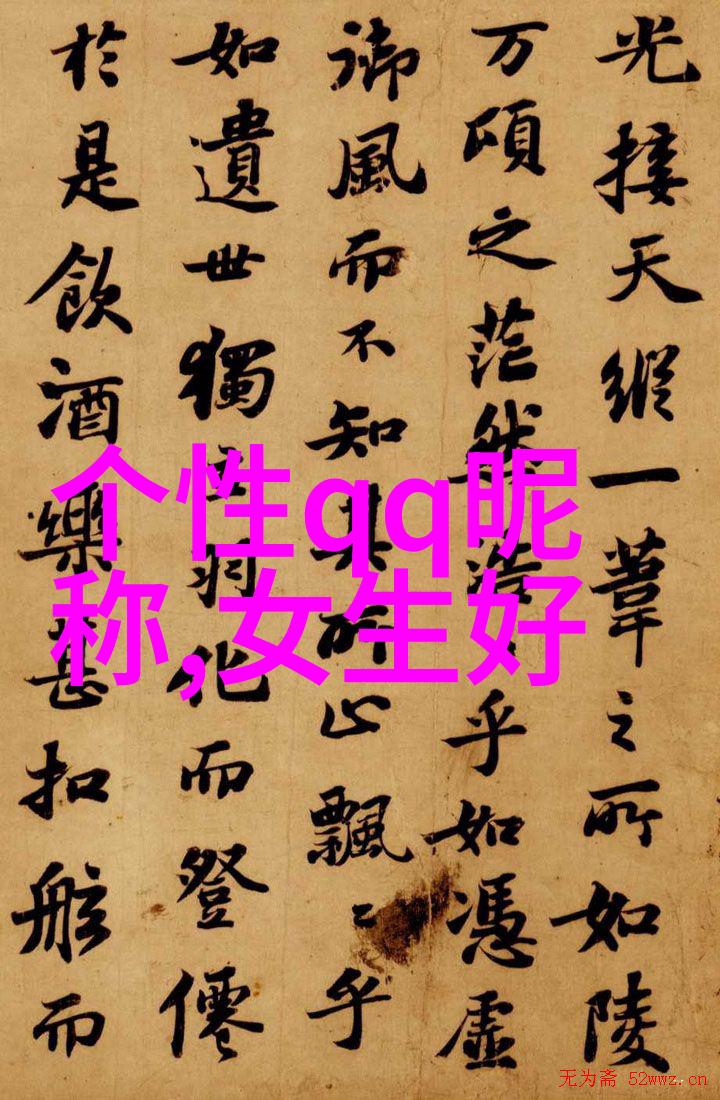 光接天縱一葦之所如陵
万頃之茫然浩〻乎如憑虛
御風而不知其所止飄〻乎
如遺世獨立羽化而登僊
於是飲酒樂甚扣舷而
个性qq昵
称,女生好
无为斋 52wwz.cn